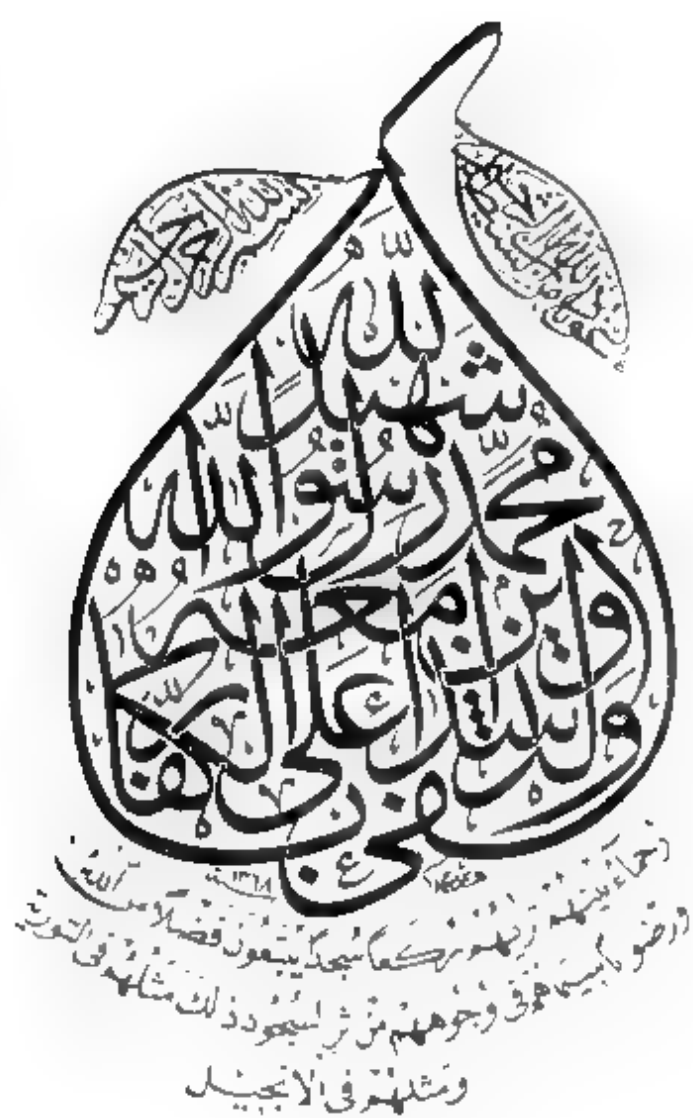 بسم الله الرحمن الرحيم
وكفى بالله شهيدا
محمد رسول الله
والذين معه
اشداء على الكفار
سنة ١٣٦٨
رحماء بينهم تريهم ركعا سجدا يبتغون فضلا من الله
ورضوانا سيماهم فى وجوههم من اثر السجود ذلك مثلهم فى التورية
ومثلهم فى الانجيل